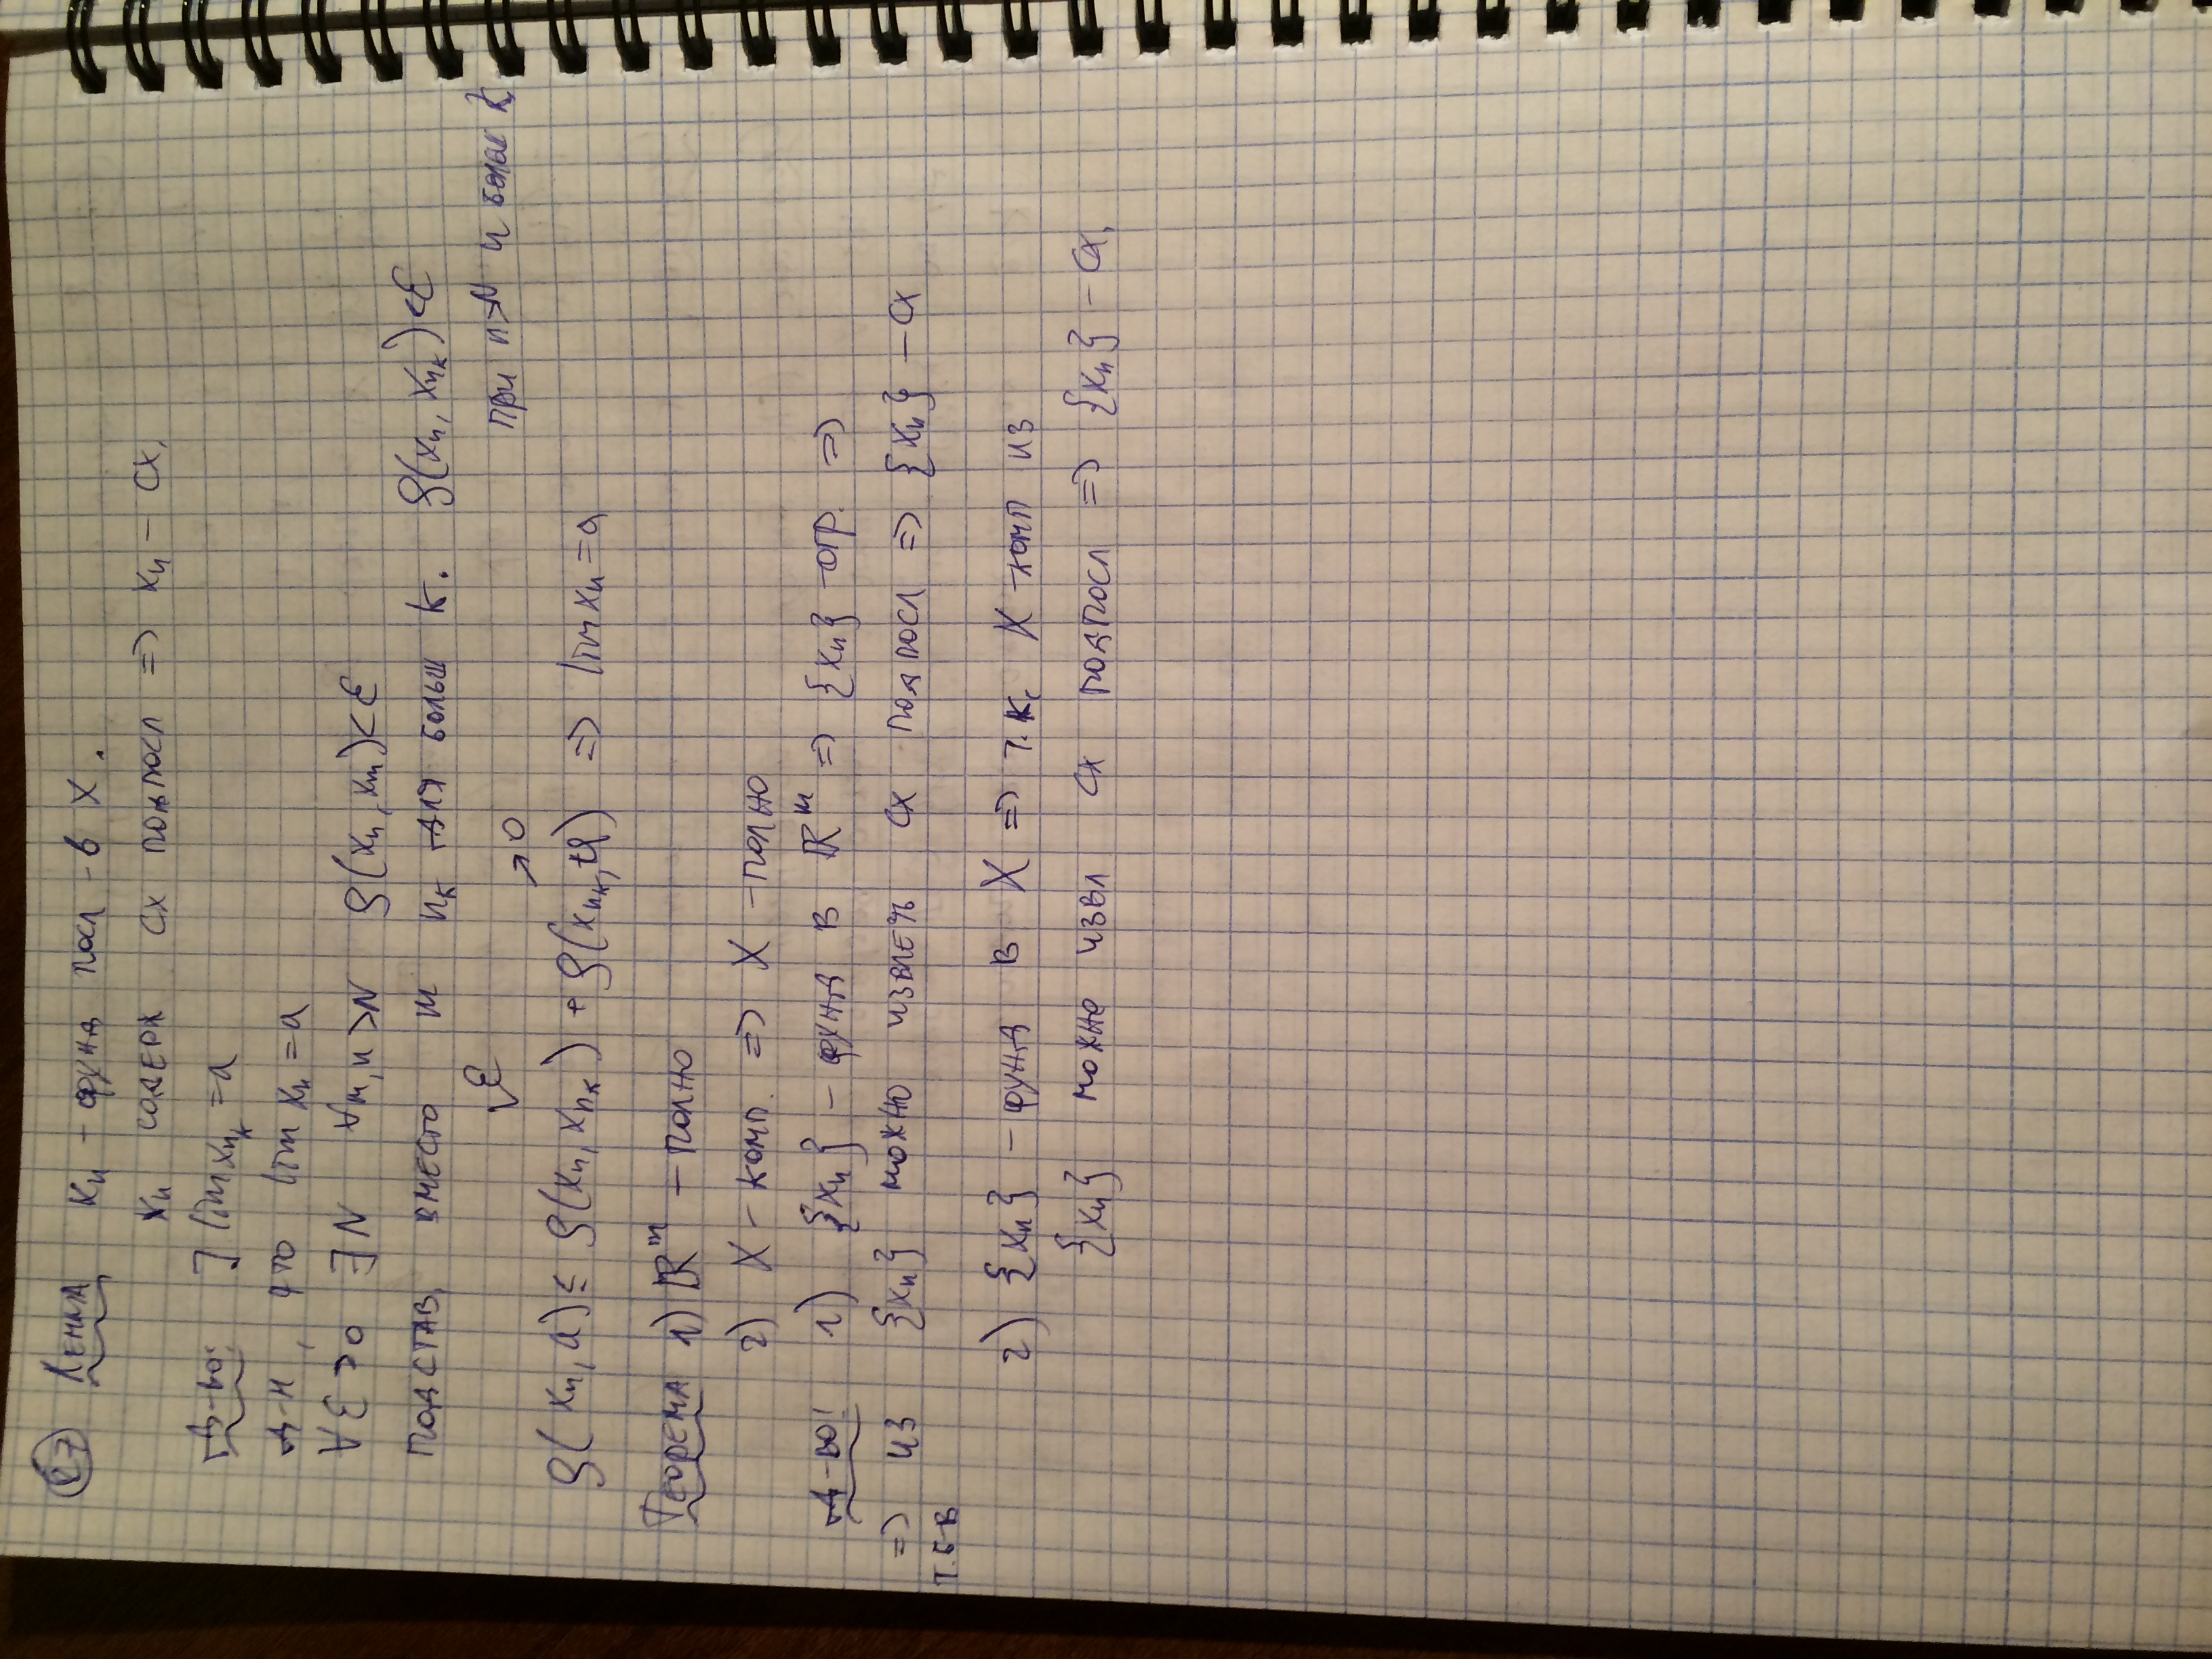 27 Лемма xₙ – фунд посл – в X.
xₙ содерж сх подпосл => xₙ – сх.
Д-во: ] lim xₙₖ = a
Д-м, что lim xₙ = a
∀ε>0 ∃N ∀m,n>N ρ(xₙ, xₘ)<ε
подстав. вместо m nₖ для больш k. ρ(xₙ, xₙₖ)<ε
при n>N и больш k
ε →0
ρ(xₙ, a) ≤ ρ(xₙ, xₙₖ) + ρ(xₙₖ, a) => lim xₙ = a
Теорема 1) ℝᵐ – полно
2) X – комп. => X – полно
Д-во: 1) {xₙ} – фунд в ℝᵐ => {xₙ} – огр. =>
=> из {xₙ} можно извлечь сх подпосл => {xₙ} – сх
Т.Б-В
2) {xₙ} – фунд в X => т.к. X – комп из
{xₙ} можно извл сх подпосл => {xₙ} – сх.